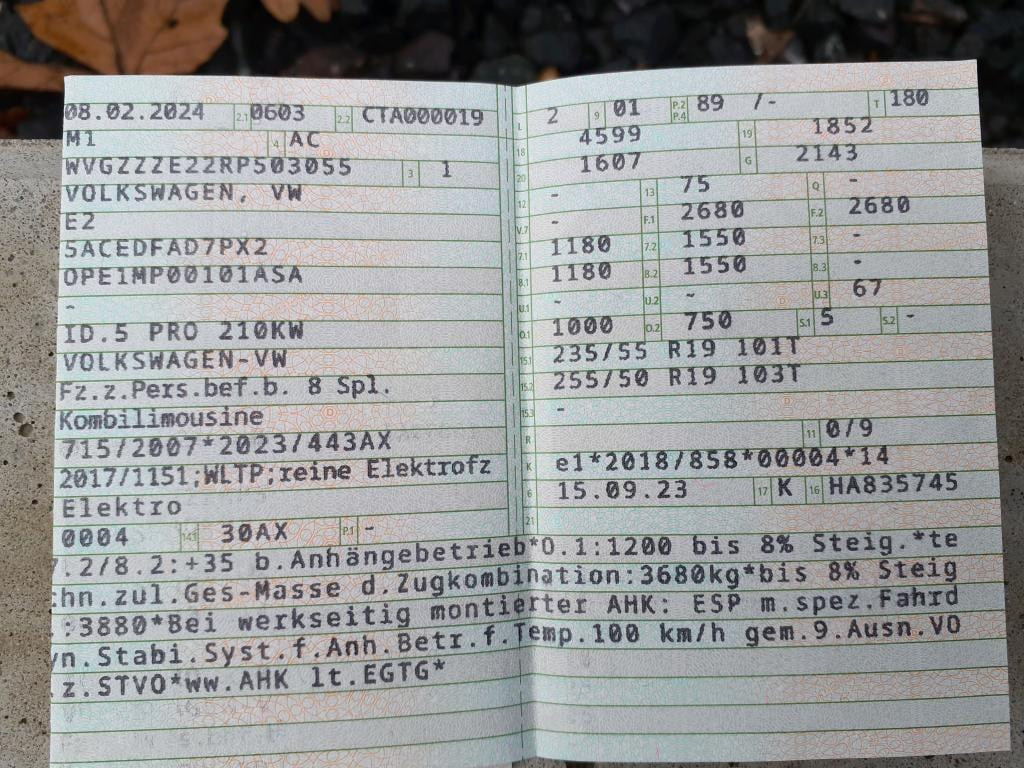 08.02.2024 2.1 0603 2.2 CTA000019
M1 4 AC
WVGZZZE22RP503055 3 1
VOLKSWAGEN, VW
E2
5ACEDFAD7PX2
OPE1MP00101ASA
-
ID.5 PRO 210KW
VOLKSWAGEN-VW
Fz.z.Pers.bef.b. 8 Spl.
Kombilimousine
715/2007*2023/443AX
2017/1151;WLTP;reine Elektrofz
Elektro
0004 14.1 30AX P.1 -
L 2 9 01 P.2 P.4 89 /- T 180
18 4599 19 1852
20 1607 G 2143
12 - 13 75 Q -
V.7 - F.1 2680 F.2 2680
7.1 1180 7.2 1550 7.3 -
8.1 1180 8.2 1550 8.3 -
U.1 - U.2 - U.3 67
O.1 1000 O.2 750 S.1 5 S.2 -
15.1 235/55 R19 101T
15.2 255/50 R19 103T
15.3 -
R 11 0/9
K e1*2018/858*00004*14
6 15.09.23 17 K 16 HA835745
21
7.2/8.2:+35 b.Anhängebetrieb*O.1:1200 bis 8% Steig.*te
chn.zul.Ges-Masse d.Zugkombination:3680kg*bis 8% Steig
.:3880*Bei werkseitig montierter AHK: ESP m.spez.Fahrd
yn.Stabi.Syst.f.Anh.Betr.f.Temp.100 km/h gem.9.Ausn.VO
z.STVO*ww.AHK lt.EGTG*